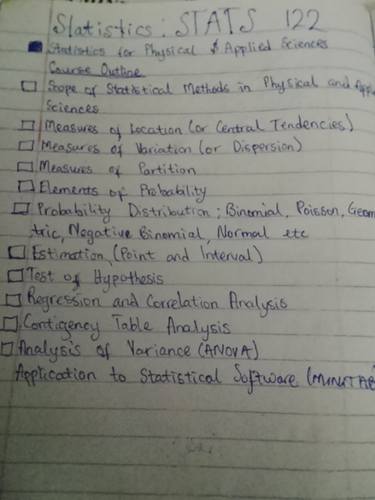 Statistics: STATS 122
Statistics for Physical & Applied Sciences
Course Outline
Scope of Statistical Methods in Physical and Appl
Sciences
Measures of Location (or Central Tendencies)
Measures of Variation (or Dispersion)
Measures of Partition
Elements of Probability
Probability Distribution; Binomial, Poisson, Geom
tric, Negative Binomial, Normal etc
Estimation (Point and Interval)
Test of Hypothesis
Regression and Correlation Analysis
Contigency Table Analysis
Analysis of Variance (ANOVA)
Application to Statistical Software (MINITAB